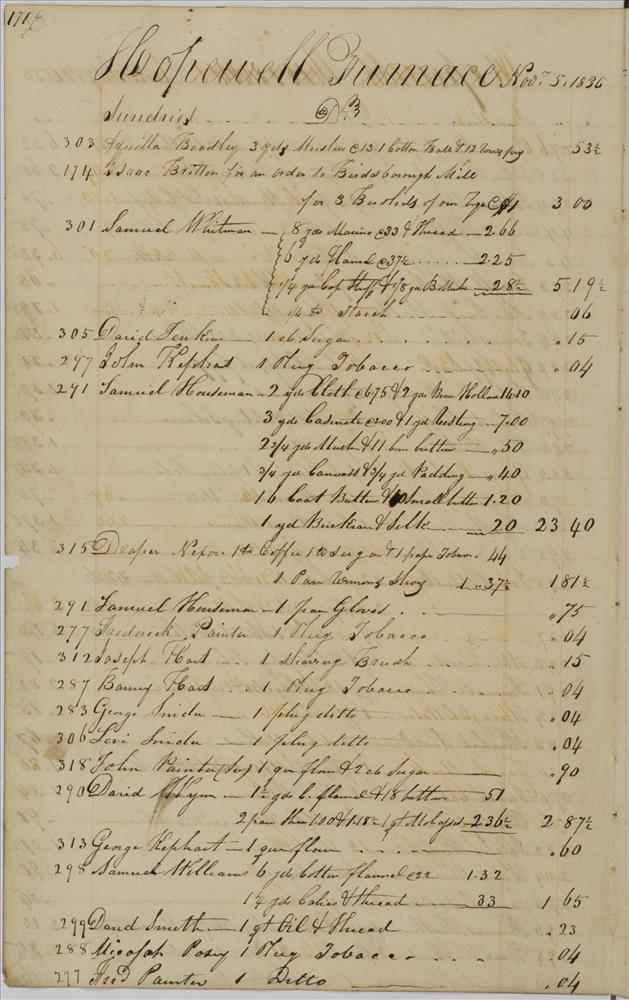 Hopewell Furnace Novr 5, 1836
Sundries Dr
303 Aquilla Bradley 3 yds Muslin @ 13. 1 cotton Ball & 12 53½
174 Isaac Britton for an order to Birdsborough Mill
for 3 Bushels of our Rye @ $1 3 00
301 Samuel Whitman — 8 yds Marino @ 33 & thread — 2.66
6 yds flannel @ 37½ 2.25
1/4 yd & 1/8 yd 28½ 5 19½
1/4 lb Starch 06
305 David Jenkins — 1 lb Sugar . 15
297 John Kephart 1 Plug Tobacco . 04
291 Samuel Houseman — 2 yds Cloth @ 6.75 & 2 yds Holland 14.10
3 yds Casinete @ 200 & 1 yd Vesting — 7.00
2 3/4 yds Muslin & 11 button — „ 50
3/4 yd Canvass & 3/4 yd Padding — „ 40
16 Coat Button & 10 Small button 1.20
1 yd Buckram & Silk 20 23 40
315 Draper Nixon 1 lb Coffee 1 lb Sugar & 1 paper Tobacco . 44
1 Pair Womens Shoes 1.37½ 1 81½
291 Samuel Houseman — 1 pair Gloves „ 75
277 Frederick Painter 1 Plug Tobacco . 04
312 Joseph Hart 1 Shaving Brush . 15
287 Barney Hart 1 Plug Tobacco . 04
283 George Snider — 1 plug ditto . 04
306 Levi Snider — 1 plug ditto . 04
318 John Painter (Ser) 1 qur flour & 2 lb Sugar . 90
290 David Wynn — 1½ yds C. flannel & 18 button 51
2 pair shoes 100 & 1.18½ 1 qt Molasses 2.36½ 2 87½
313 George Kephart — 1 qur flour . 60
298 Samuel Williams 6 yds Cotton flannel @ 22 1.32
1½ yds Calico & thread — 33 1 65
299 David Smith — 1 qt Oil & thread . 23
288 Posey 1 Plug Tobacco . 04
277 Fred Painter 1 Ditto . 04